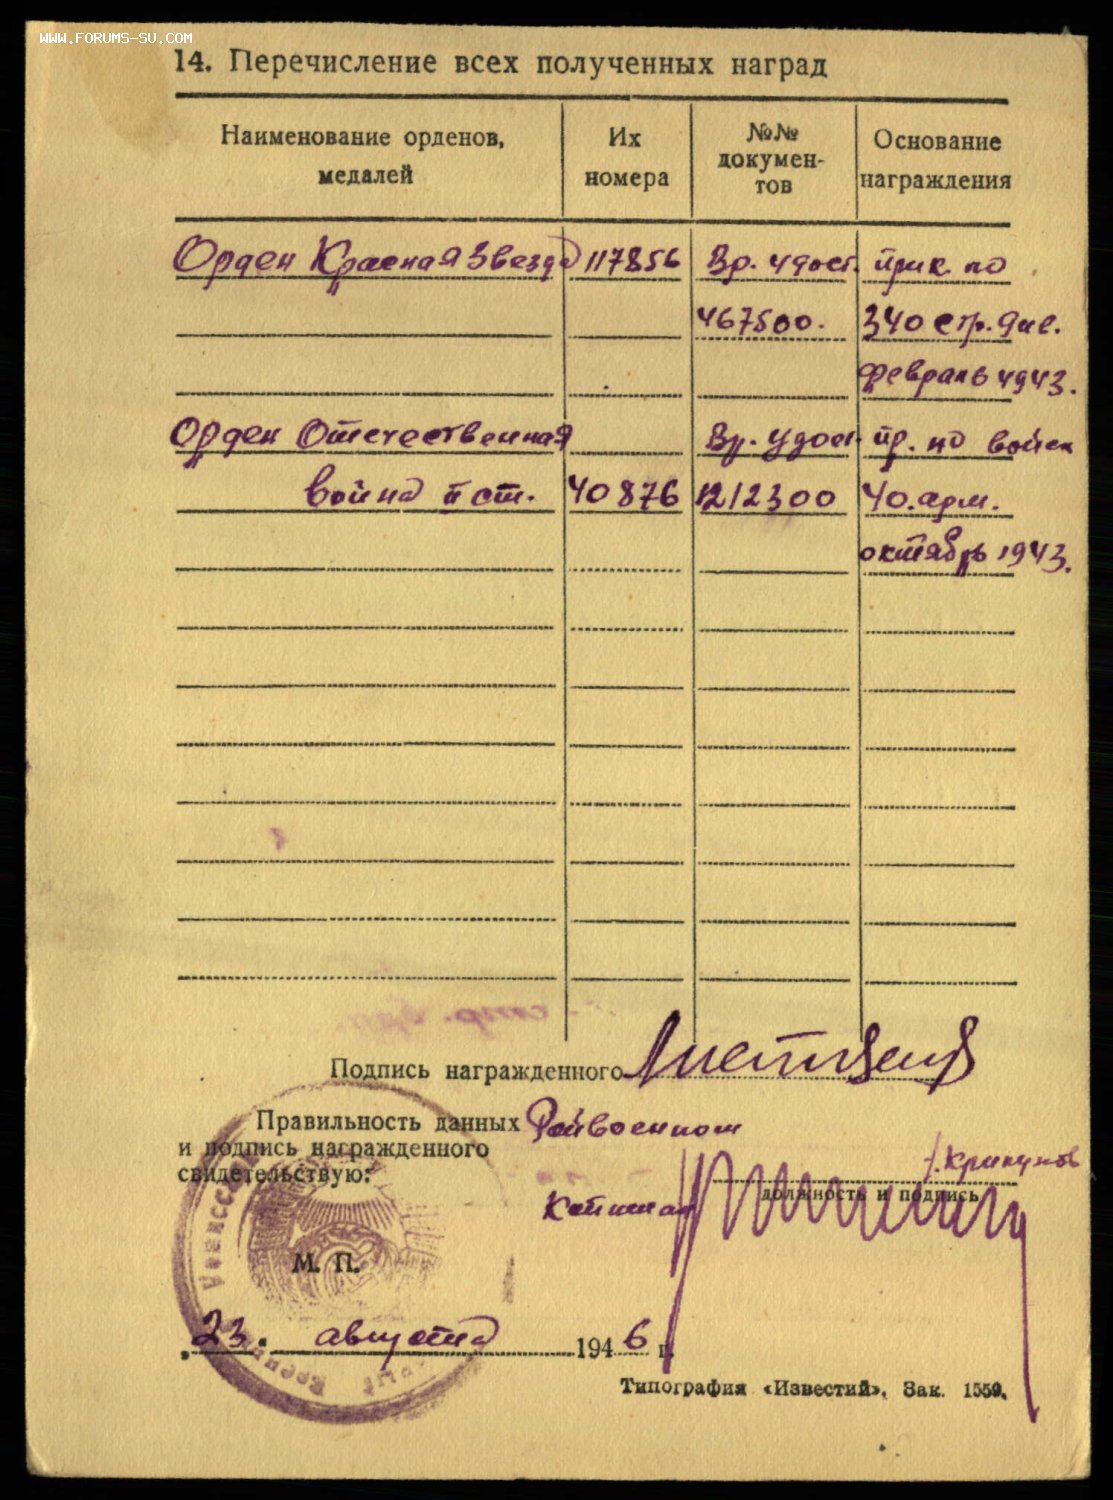 WWW.FORUMS-SU.COM
14. Перечисление всех полученных наград
Наименование орденов, медалей
Их номера
№№ докумен-тов
Основание награждения
Орден Красная Звезда 117856 Вр. удост. прик. по
467500. 340 стр. див.
февраль 1943.
Орден Отечественная Вр. удост. пр. по войск
война II ст. 40876 1212300 40. арм.
октябрь 1943.
Подпись награжденного
Правильность данных Райвоенком
и подпись награжденного
свидетельствую:
должность и подпись
М. П.
"23" августа 1946 г.
Типография «Известий». Зак. 1550.